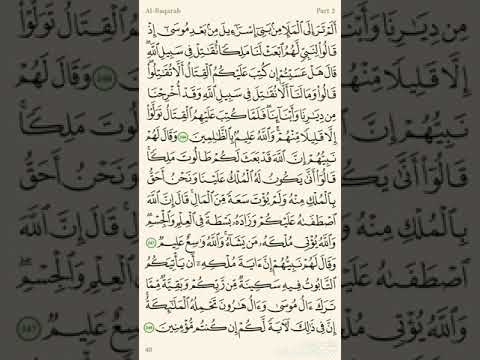 Al-Baqarah Part 2
أَلَمْ تَرَ إِلَى ٱلْمَلَإِ مِنۢ بَنِىٓ إِسْرَٰٓءِيلَ مِنۢ بَعْدِ مُوسَىٰٓ إِذْ
قَالُوا۟ لِنَبِىٍّ لَّهُمُ ٱبْعَثْ لَنَا مَلِكًا نُّقَٰتِلْ فِى سَبِيلِ ٱللَّهِ ۖ
قَالَ هَلْ عَسَيْتُمْ إِن كُتِبَ عَلَيْكُمُ ٱلْقِتَالُ أَلَّا تُقَٰتِلُوا۟ ۖ
قَالُوا۟ وَمَا لَنَآ أَلَّا نُقَٰتِلَ فِى سَبِيلِ ٱللَّهِ وَقَدْ أُخْرِجْنَا
مِن دِيَٰرِنَا وَأَبْنَآئِنَا ۖ فَلَمَّا كُتِبَ عَلَيْهِمُ ٱلْقِتَالُ تَوَلَّوْا۟
إِلَّا قَلِيلًا مِّنْهُمْ ۗ وَٱللَّهُ عَلِيمٌۢ بِٱلظَّٰلِمِينَ ٢٤٦ وَقَالَ لَهُمْ
نَبِيُّهُمْ إِنَّ ٱللَّهَ قَدْ بَعَثَ لَكُمْ طَالُوتَ مَلِكًا ۚ
قَالُوٓا۟ أَنَّىٰ يَكُونُ لَهُ ٱلْمُلْكُ عَلَيْنَا وَنَحْنُ أَحَقُّ
بِٱلْمُلْكِ مِنْهُ وَلَمْ يُؤْتَ سَعَةً مِّنَ ٱلْمَالِ ۚ قَالَ إِنَّ ٱللَّهَ
ٱصْطَفَىٰهُ عَلَيْكُمْ وَزَادَهُۥ بَسْطَةً فِى ٱلْعِلْمِ وَٱلْجِسْمِ ۖ
وَٱللَّهُ يُؤْتِى مُلْكَهُۥ مَن يَشَآءُ ۚ وَٱللَّهُ وَٰسِعٌ عَلِيمٌ ٢٤٧
وَقَالَ لَهُمْ نَبِيُّهُمْ إِنَّ ءَايَةَ مُلْكِهِۦٓ أَن يَأْتِيَكُمُ
ٱلتَّابُوتُ فِيهِ سَكِينَةٌ مِّن رَّبِّكُمْ وَبَقِيَّةٌ مِّمَّا
تَرَكَ ءَالُ مُوسَىٰ وَءَالُ هَٰرُونَ تَحْمِلُهُ ٱلْمَلَٰٓئِكَةُ ۚ
إِنَّ فِى ذَٰلِكَ لَءَايَةً لَّكُمْ إِن كُنتُم مُّؤْمِنِينَ ٢٤٨
40